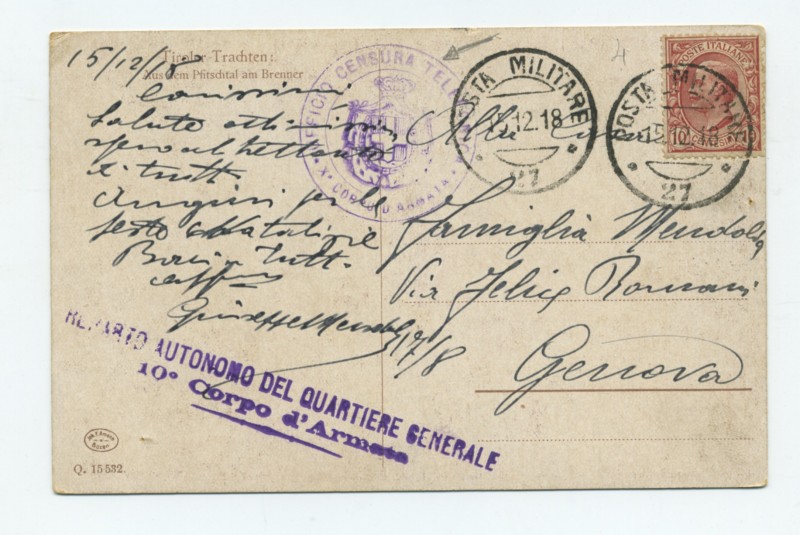 Tiroler-Trachten:
Aus dem Pfitschtal am Brenner
15/12/18
Carissimi
Salute ottimo
spero altrettanto
x tutti
Auguri per le
feste Natalizie
Baci a tutti
aff
Giuseppe Mendol
UFFICIO CENSURA TELE
X. CORPO D'ARMATA
POSTA MILITARE
15.12.18
27
POSTA MILITARE
15.12.18
27
POSTE ITALIANE
4
Alla
Famiglia
Via Felice Romani
17/8
Genova
REPARTO AUTONOMO DEL QUARTIERE GENERALE
10° Corpo d'Armata
Q. 15 532.